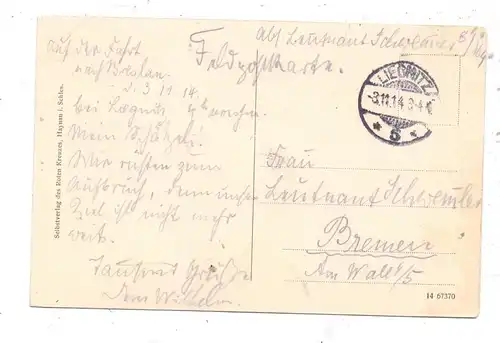 Abs. Leutnant Schwemer
Feldpostkarte.
auf der Fahrt
nach Breslau.
d. 3 11 14.
bei Liegnitz
Mein Schätzli!
Wir rüsten zum
Aufbruch, denn unser
Ziel ist nicht mehr
weit.
Tausend Grüße
Dein Wilhelm.
LIEGNITZ
-3.11.14.3-4 N.
* 5 *
Frau
Leutnant Schwemer
Bremen
Am Wall
Selbstverlag des Roten Kreuzes, Haynau i. Schles.
14 67370